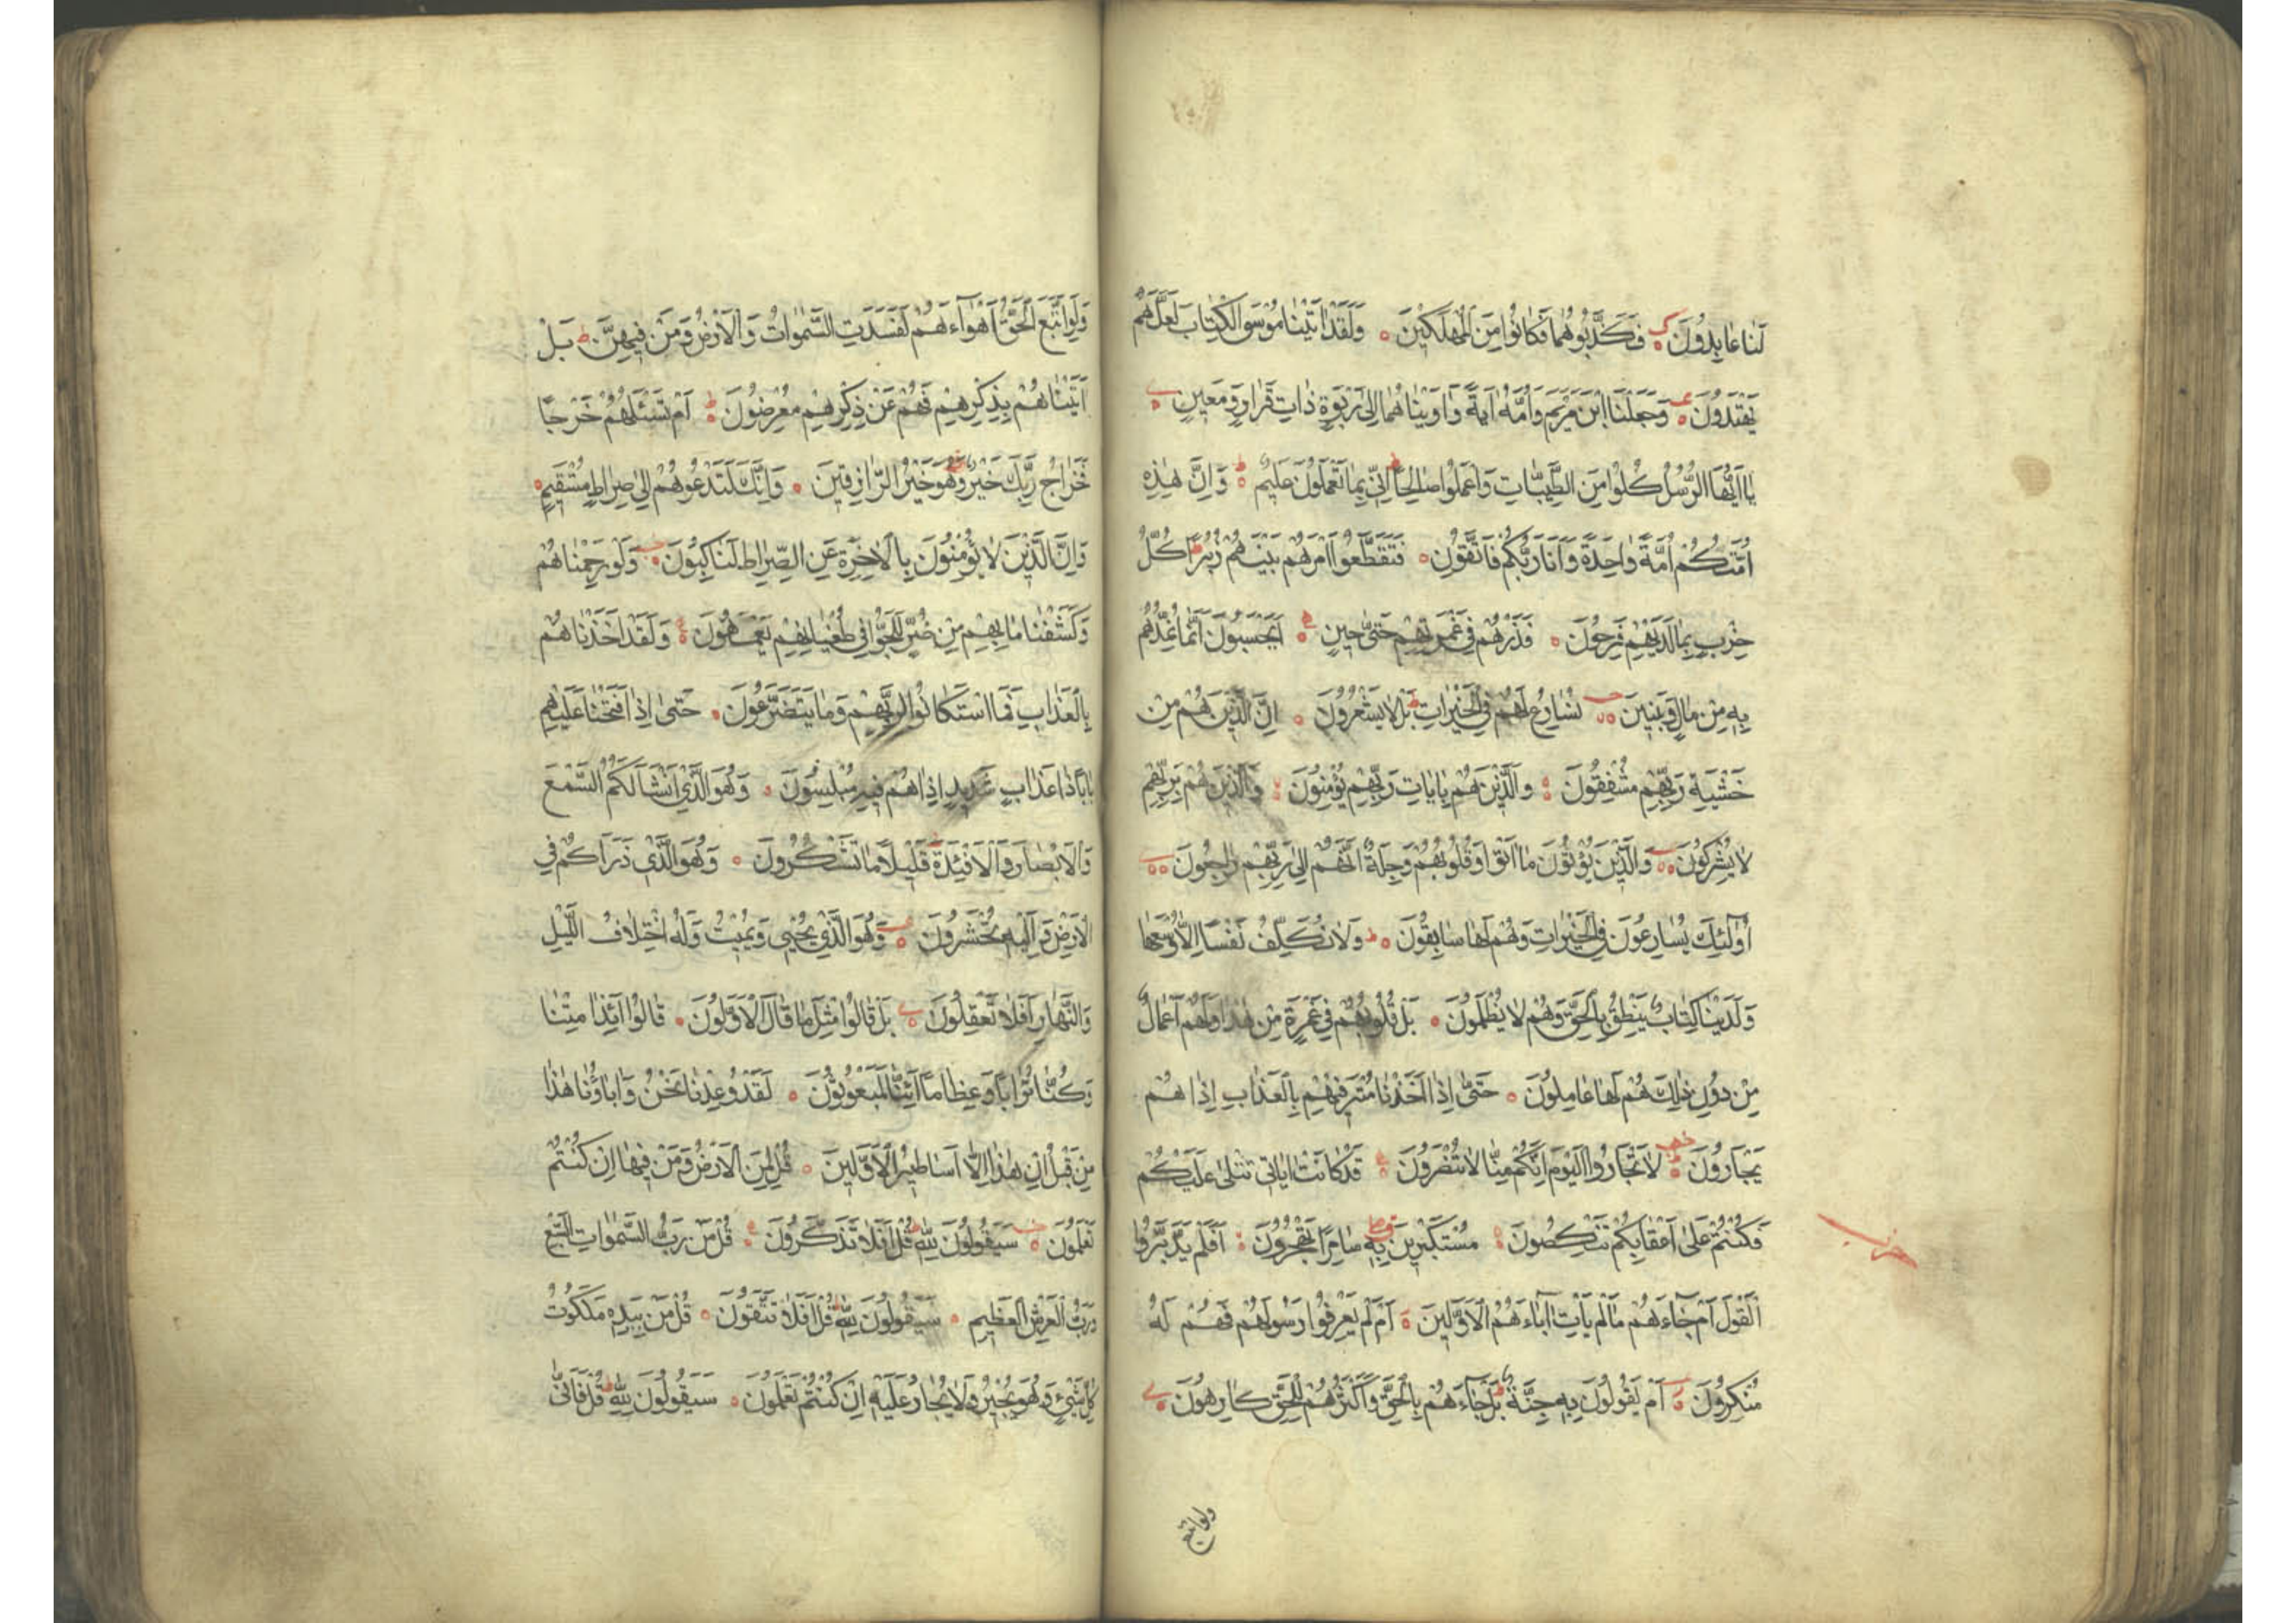 لَنَا عَابِدُونَ فَكَذَّبُوهُمَا فَكَانُوا مِنَ الْمُهْلَكِينَ وَلَقَدْ اٰتَيْنَا مُوسَى الْكِتَابَ لَعَلَّهُمْ
يَهْتَدُونَ وَجَعَلْنَا ابْنَ مَرْيَمَ وَاُمَّهُ اٰيَةً وَاٰوَيْنَاهُمَا اِلٰى رَبْوَةٍ ذَاتِ قَرَارٍ وَمَعِينٍ
يَا اَيُّهَا الرُّسُلُ كُلُوا مِنَ الطَّيِّبَاتِ وَاعْمَلُوا صَالِحًا اِنِّى بِمَا تَعْمَلُونَ عَلِيمٌ وَاِنَّ هٰذِهِ
اُمَّتُكُمْ اُمَّةً وَاحِدَةً وَاَنَا رَبُّكُمْ فَاتَّقُونِ فَتَقَطَّعُوا اَمْرَهُمْ بَيْنَهُمْ زُبُرًا كُلُّ
حِزْبٍ بِمَا لَدَيْهِمْ فَرِحُونَ فَذَرْهُمْ فِى غَمْرَتِهِمْ حَتّٰى حِينٍ اَيَحْسَبُونَ اَنَّمَا نُمِدُّهُمْ
بِهِ مِنْ مَالٍ وَبَنِينَ نُسَارِعُ لَهُمْ فِى الْخَيْرَاتِ بَلْ لَا يَشْعُرُونَ اِنَّ الَّذِينَ هُمْ مِنْ
خَشْيَةِ رَبِّهِمْ مُشْفِقُونَ وَالَّذِينَ هُمْ بِاٰيَاتِ رَبِّهِمْ يُؤْمِنُونَ وَالَّذِينَ هُمْ بِرَبِّهِمْ
لَا يُشْرِكُونَ وَالَّذِينَ يُؤْتُونَ مَا اٰتَوْا وَقُلُوبُهُمْ وَجِلَةٌ اَنَّهُمْ اِلٰى رَبِّهِمْ رَاجِعُونَ
اُولٰئِكَ يُسَارِعُونَ فِى الْخَيْرَاتِ وَهُمْ لَهَا سَابِقُونَ وَلَا نُكَلِّفُ نَفْسًا اِلَّا وُسْعَهَا
وَلَدَيْنَا كِتَابٌ يَنْطِقُ بِالْحَقِّ وَهُمْ لَا يُظْلَمُونَ بَلْ قُلُوبُهُمْ فِى غَمْرَةٍ مِنْ هٰذَا وَلَهُمْ اَعْمَالٌ
مِنْ دُونِ ذٰلِكَ هُمْ لَهَا عَامِلُونَ حَتّٰى اِذَا اَخَذْنَا مُتْرَفِيهِمْ بِالْعَذَابِ اِذَا هُمْ
يَجْاَرُونَ لَا تَجْاَرُوا الْيَوْمَ اِنَّكُمْ مِنَّا لَا تُنْصَرُونَ قَدْ كَانَتْ اٰيَاتِى تُتْلٰى عَلَيْكُمْ
فَكُنْتُمْ عَلٰى اَعْقَابِكُمْ تَنْكِصُونَ مُسْتَكْبِرِينَ بِهِ سَامِرًا تَهْجُرُونَ اَفَلَمْ يَدَّبَّرُوا
حزب
الْقَوْلَ اَمْ جَاءَهُمْ مَا لَمْ يَاْتِ اٰبَاءَهُمُ الْاَوَّلِينَ اَمْ لَمْ يَعْرِفُوا رَسُولَهُمْ فَهُمْ لَهُ
مُنْكِرُونَ اَمْ يَقُولُونَ بِهِ جِنَّةٌ بَلْ جَاءَهُمْ بِالْحَقِّ وَاَكْثَرُهُمْ لِلْحَقِّ كَارِهُونَ
ولو اتبع
وَلَوِ اتَّبَعَ الْحَقُّ اَهْوَاءَهُمْ لَفَسَدَتِ السَّمٰوَاتُ وَالْاَرْضُ وَمَنْ فِيهِنَّ بَلْ
اَتَيْنَاهُمْ بِذِكْرِهِمْ فَهُمْ عَنْ ذِكْرِهِمْ مُعْرِضُونَ اَمْ تَسْئَلُهُمْ خَرْجًا
فَخَرَاجُ رَبِّكَ خَيْرٌ وَهُوَ خَيْرُ الرَّازِقِينَ وَاِنَّكَ لَتَدْعُوهُمْ اِلٰى صِرَاطٍ مُسْتَقِيمٍ
وَاِنَّ الَّذِينَ لَا يُؤْمِنُونَ بِالْاٰخِرَةِ عَنِ الصِّرَاطِ لَنَاكِبُونَ وَلَوْ رَحِمْنَاهُمْ
وَكَشَفْنَا مَا بِهِمْ مِنْ ضُرٍّ لَلَجُّوا فِى طُغْيَانِهِمْ يَعْمَهُونَ وَلَقَدْ اَخَذْنَاهُمْ
بِالْعَذَابِ فَمَا اسْتَكَانُوا لِرَبِّهِمْ وَمَا يَتَضَرَّعُونَ حَتّٰى اِذَا فَتَحْنَا عَلَيْهِمْ
بَابًا ذَا عَذَابٍ شَدِيدٍ اِذَا هُمْ فِيهِ مُبْلِسُونَ وَهُوَ الَّذِى اَنْشَاَ لَكُمُ السَّمْعَ
وَالْاَبْصَارَ وَالْاَفْئِدَةَ قَلِيلًا مَا تَشْكُرُونَ وَهُوَ الَّذِى ذَرَاَكُمْ فِى
الْاَرْضِ وَاِلَيْهِ تُحْشَرُونَ وَهُوَ الَّذِى يُحْيِى وَيُمِيتُ وَلَهُ اخْتِلَافُ الَّيْلِ
وَالنَّهَارِ اَفَلَا تَعْقِلُونَ بَلْ قَالُوا مِثْلَ مَا قَالَ الْاَوَّلُونَ قَالُوا اَئِذَا مِتْنَا
وَكُنَّا تُرَابًا وَعِظَامًا اَئِنَّا لَمَبْعُوثُونَ لَقَدْ وُعِدْنَا نَحْنُ وَاٰبَاؤُنَا هٰذَا
مِنْ قَبْلُ اِنْ هٰذَا اِلَّا اَسَاطِيرُ الْاَوَّلِينَ قُلْ لِمَنِ الْاَرْضُ وَمَنْ فِيهَا اِنْ كُنْتُمْ
تَعْلَمُونَ سَيَقُولُونَ لِلّٰهِ قُلْ اَفَلَا تَذَكَّرُونَ قُلْ مَنْ رَبُّ السَّمٰوَاتِ السَّبْعِ
وَرَبُّ الْعَرْشِ الْعَظِيمِ سَيَقُولُونَ لِلّٰهِ قُلْ اَفَلَا تَتَّقُونَ قُلْ مَنْ بِيَدِهِ مَلَكُوتُ
كُلِّ شَىْءٍ وَهُوَ يُجِيرُ وَلَا يُجَارُ عَلَيْهِ اِنْ كُنْتُمْ تَعْلَمُونَ سَيَقُولُونَ لِلّٰهِ قُلْ فَاَنّٰى